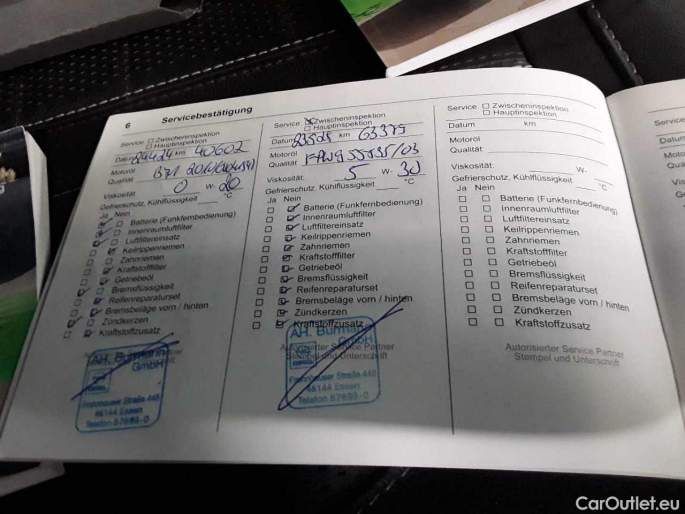 6 Servicebestätigung
Service Zwischeninspektion
Hauptinspektion
Datum km 40602
Motoröl
Qualität
Viskosität: 0 W- 20
Gefrierschutz, Kühlflüssigkeit °C
Ja Nein
Batterie (Funkfernbedienung)
Innenraumluftfilter
Luftfiltereinsatz
Keilrippenriemen
Zahnriemen
Kraftstofffilter
Getriebeöl
Bremsflüssigkeit
Reifenreparaturset
Bremsbeläge vorn / hinten
Zündkerzen
Kraftstoffzusatz
AH. Burmann
GmbH
Frohnhauser Straße 448
45144 Essen
Service Zwischeninspektion
Hauptinspektion
Datum km 63375
Motoröl
Qualität
Viskosität: 5 W- 30
Gefrierschutz, Kühlflüssigkeit °C
Ja Nein
Batterie (Funkfernbedienung)
Innenraumluftfilter
Luftfiltereinsatz
Keilrippenriemen
Zahnriemen
Kraftstofffilter
Getriebeöl
Bremsflüssigkeit
Reifenreparaturset
Bremsbeläge vorn / hinten
Zündkerzen
Kraftstoffzusatz
Autorisierter Service Partner
Stempel und Unterschrift
AH. Burmann
GmbH
Frohnhauser Straße 448
45144 Essen
Service Zwischeninspektion
Hauptinspektion
Datum km
Motoröl
Qualität
Viskosität: W-
Gefrierschutz, Kühlflüssigkeit °C
Ja Nein
Batterie (Funkfernbedienung)
Innenraumluftfilter
Luftfiltereinsatz
Keilrippenriemen
Zahnriemen
Kraftstofffilter
Getriebeöl
Bremsflüssigkeit
Reifenreparaturset
Bremsbeläge vorn / hinten
Zündkerzen
Kraftstoffzusatz
Autorisierter Service Partner
Stempel und Unterschrift
CarOutlet.eu